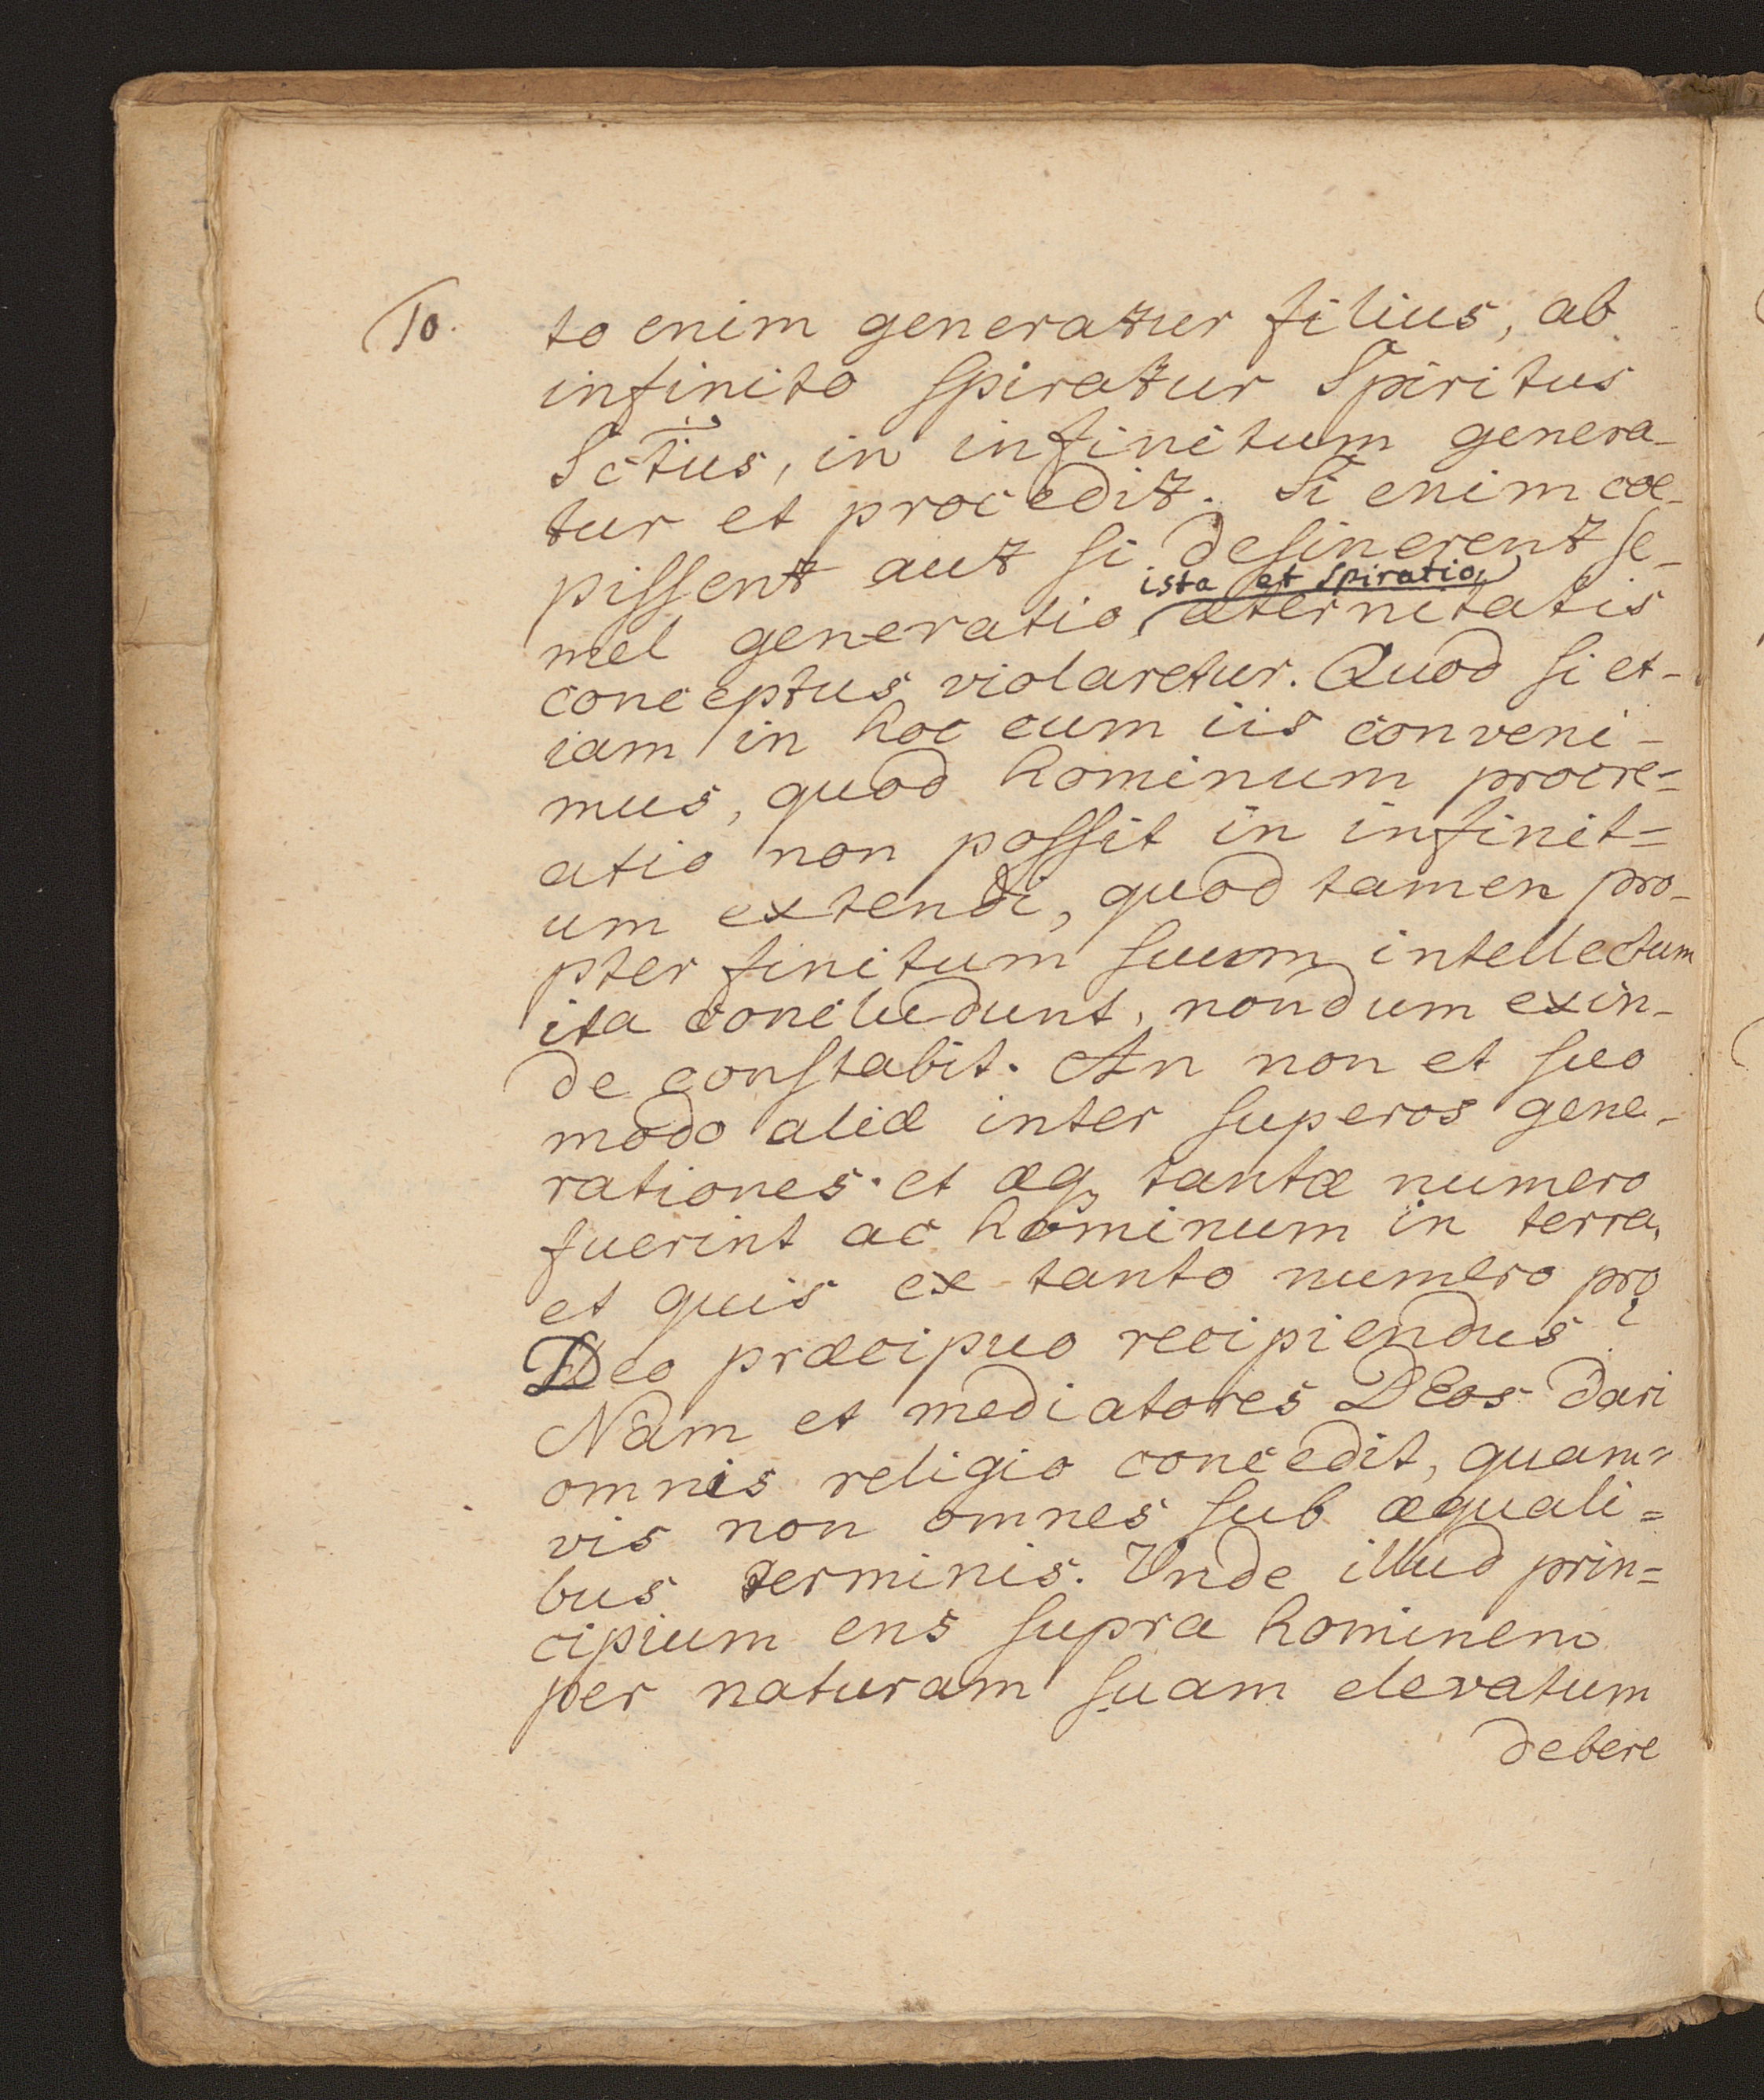 10.
to enim generatur filius, ab
infinito spiratur Spiritus
Sctus, in infinitum genera-
tur et procedit. Si enim coe-
pissent aut si desinerent se-
ista et spiratio,
mel generatio, æternitatis
conceptus violaretur. Quod si et-
iam in hoc cum iis conveni-
mus, quod hominum procre=
atio non possit in infinit=
um extendi, quod tamen pro-
pter finitum suum intellectum
ita concludunt, nondum exin-
de constabit. An non et suo
modo aliæ inter superos gene-
rationes. et æq₃ tantæ numero
fuerint ac hominum in terra,
et quis ex tanto numero pro
Deo præcipuo recipiendus?
Nam et mediatores DEos dari
omnis religio concedit, quam=
vis non omnes sub æquali=
bus terminis. Unde illud prin=
cipium ens supra hominem
per naturam suam elevatum
debere